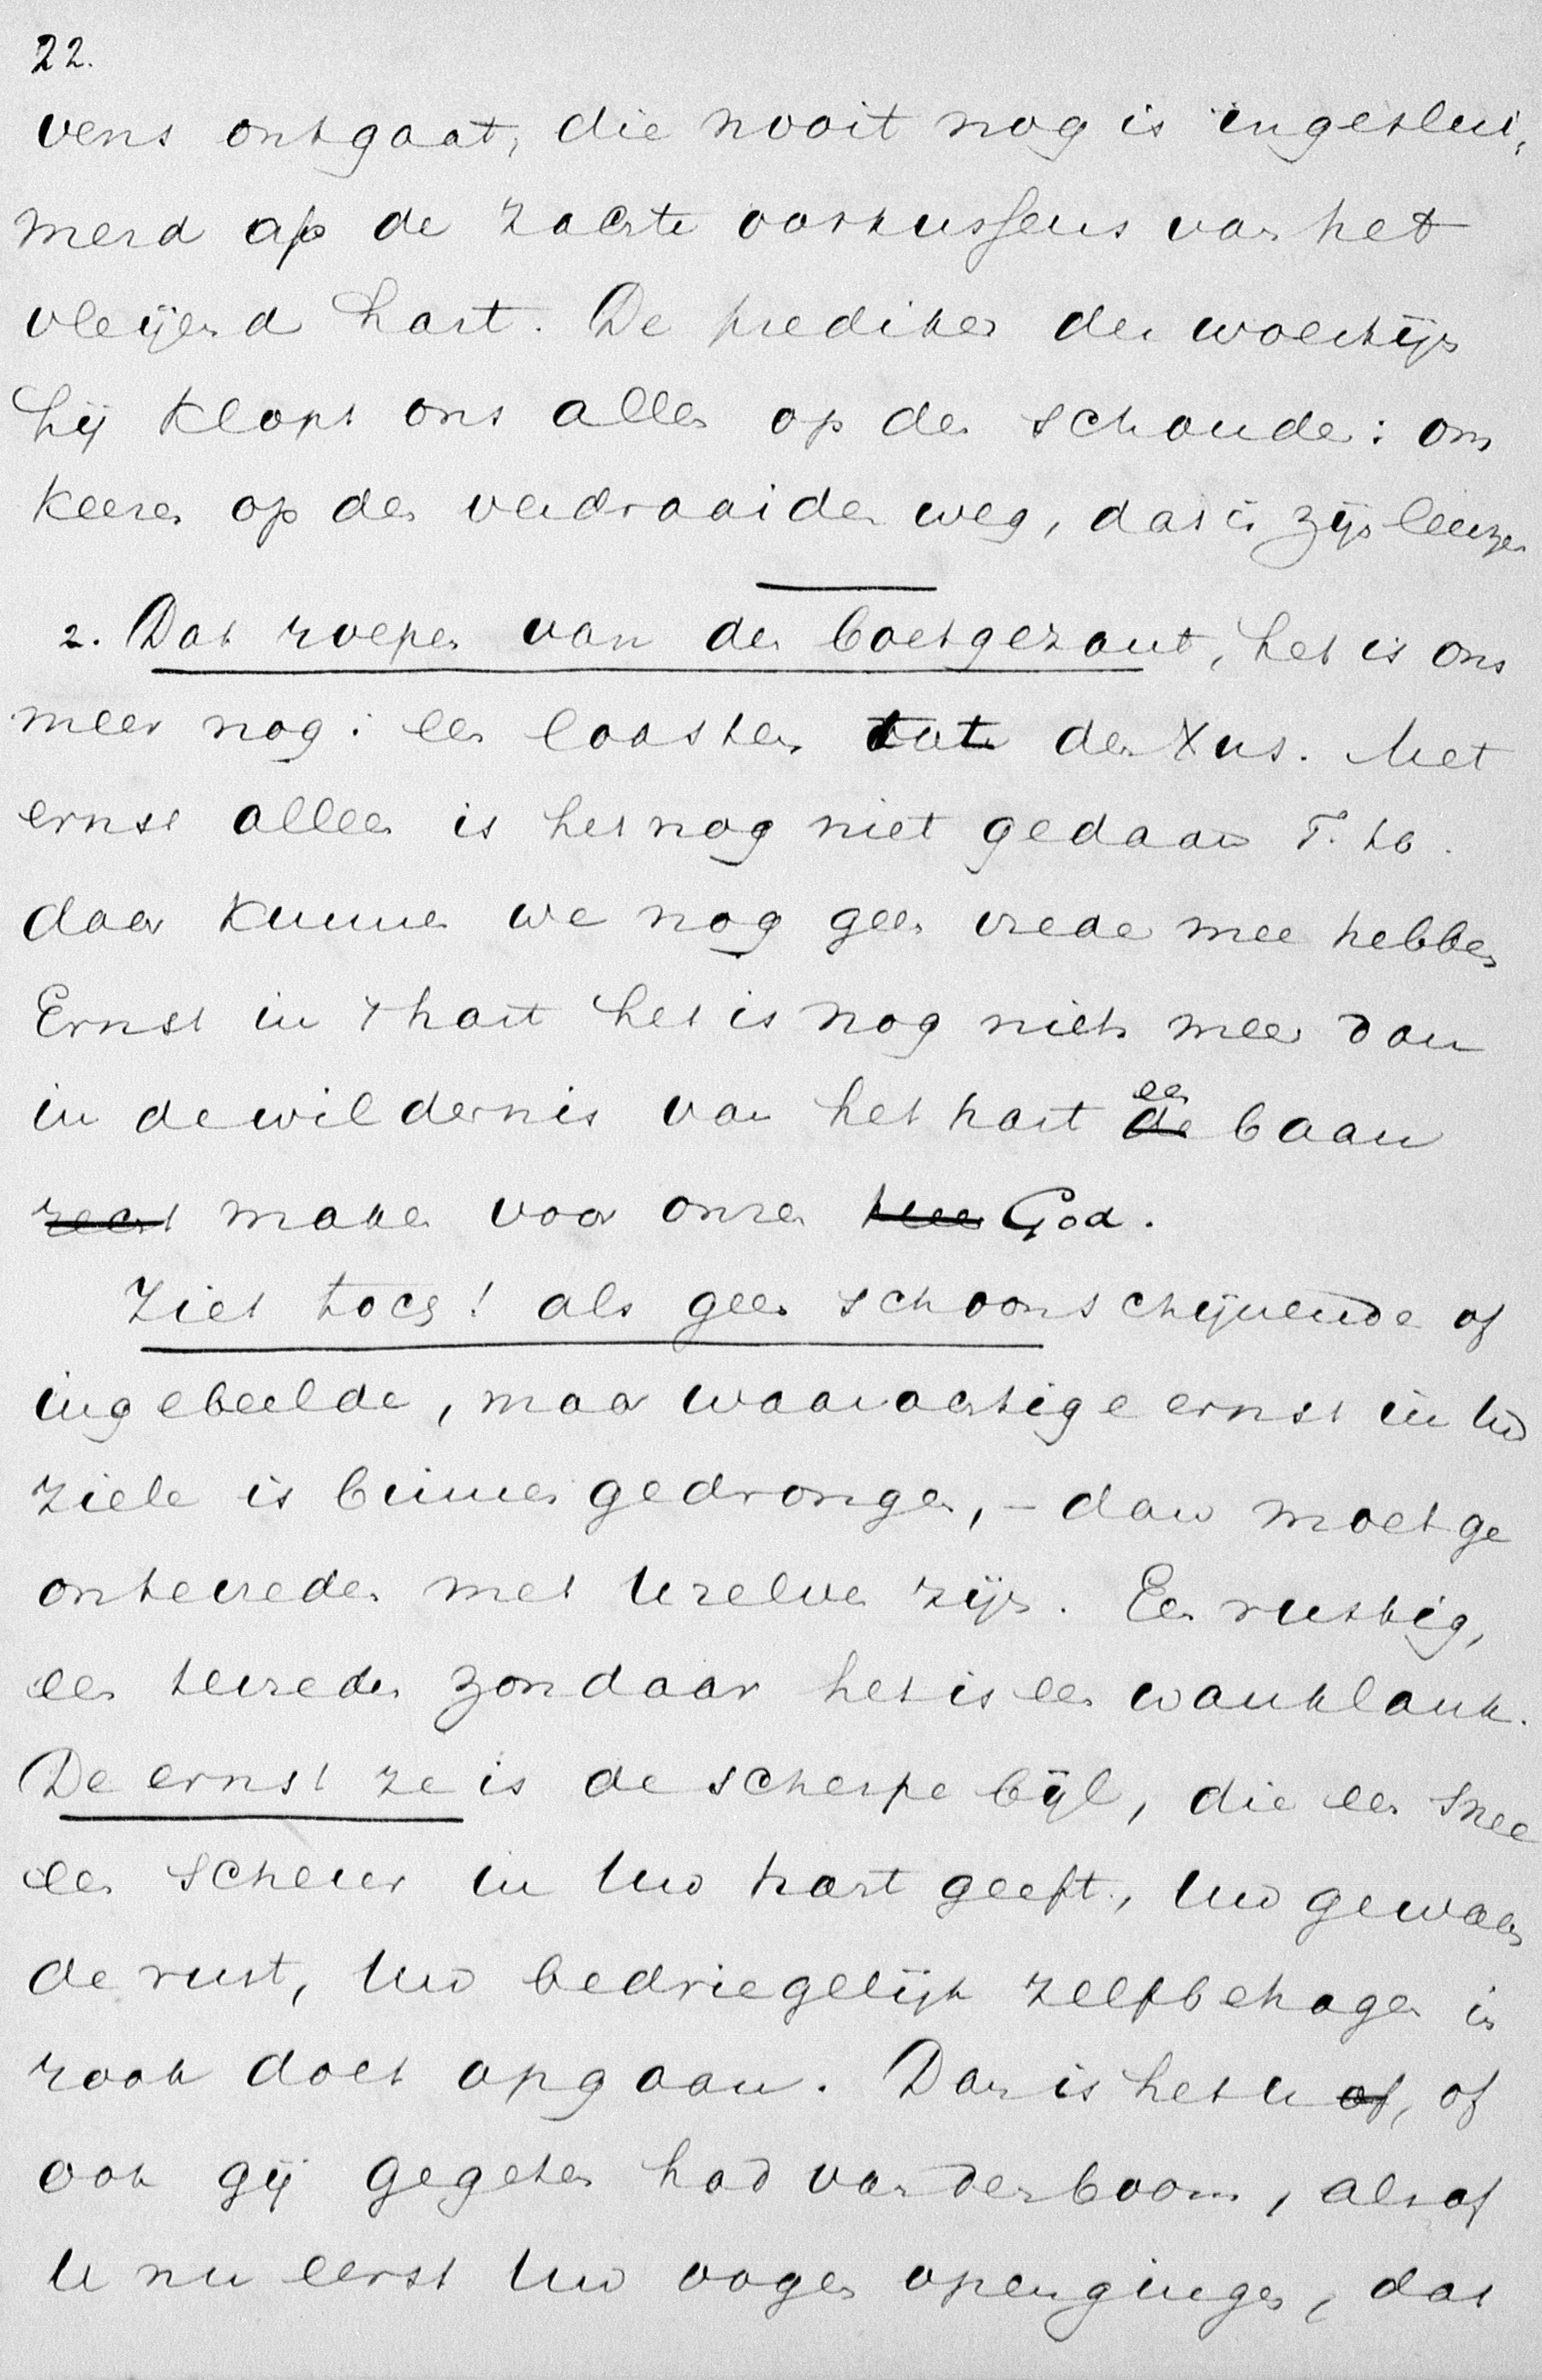 22.
vens ontgaat, die nooit nog is ingeslui,
merd op de zachte oorkussens van het
vleijend hart. De prediker der woestijn
hij klopt ons allen op den schouder: om
keeren op den verdraaiden weg, dat is zijn leuze
2. Dat roepen van den boetgezant, het is ons
meer nog: een laasten tot den Xus. Met
ernst alleen is het nog niet gedaan
daar kunnen we nog geen vrede mee hebben
Ernst in 't hart het is nog niets meer dan
in de wildernis van het hart de een baan
recht maken voor onzen Heer God.
Ziet toch! als geen schoonschijnende of
ingebeelde, maar waarachtige ernst in Uw
ziele is binnengedrongen, – dan moet ge
ontevreden met Uzelven zijn. Een rustig,
een tevreden zondaar het is een wanklank.
De ernst ze is de scherpe bijl, die een snee
een scheur in Uw hart geeft, Uw gewaan
de rust, Uw bedriegelijk zelfbehagen in
rook doet opgaan. Dan is het U of, of
ook gij gegeten had van den boom, alsof
U nu eerst Uw oogen opengingen, dat